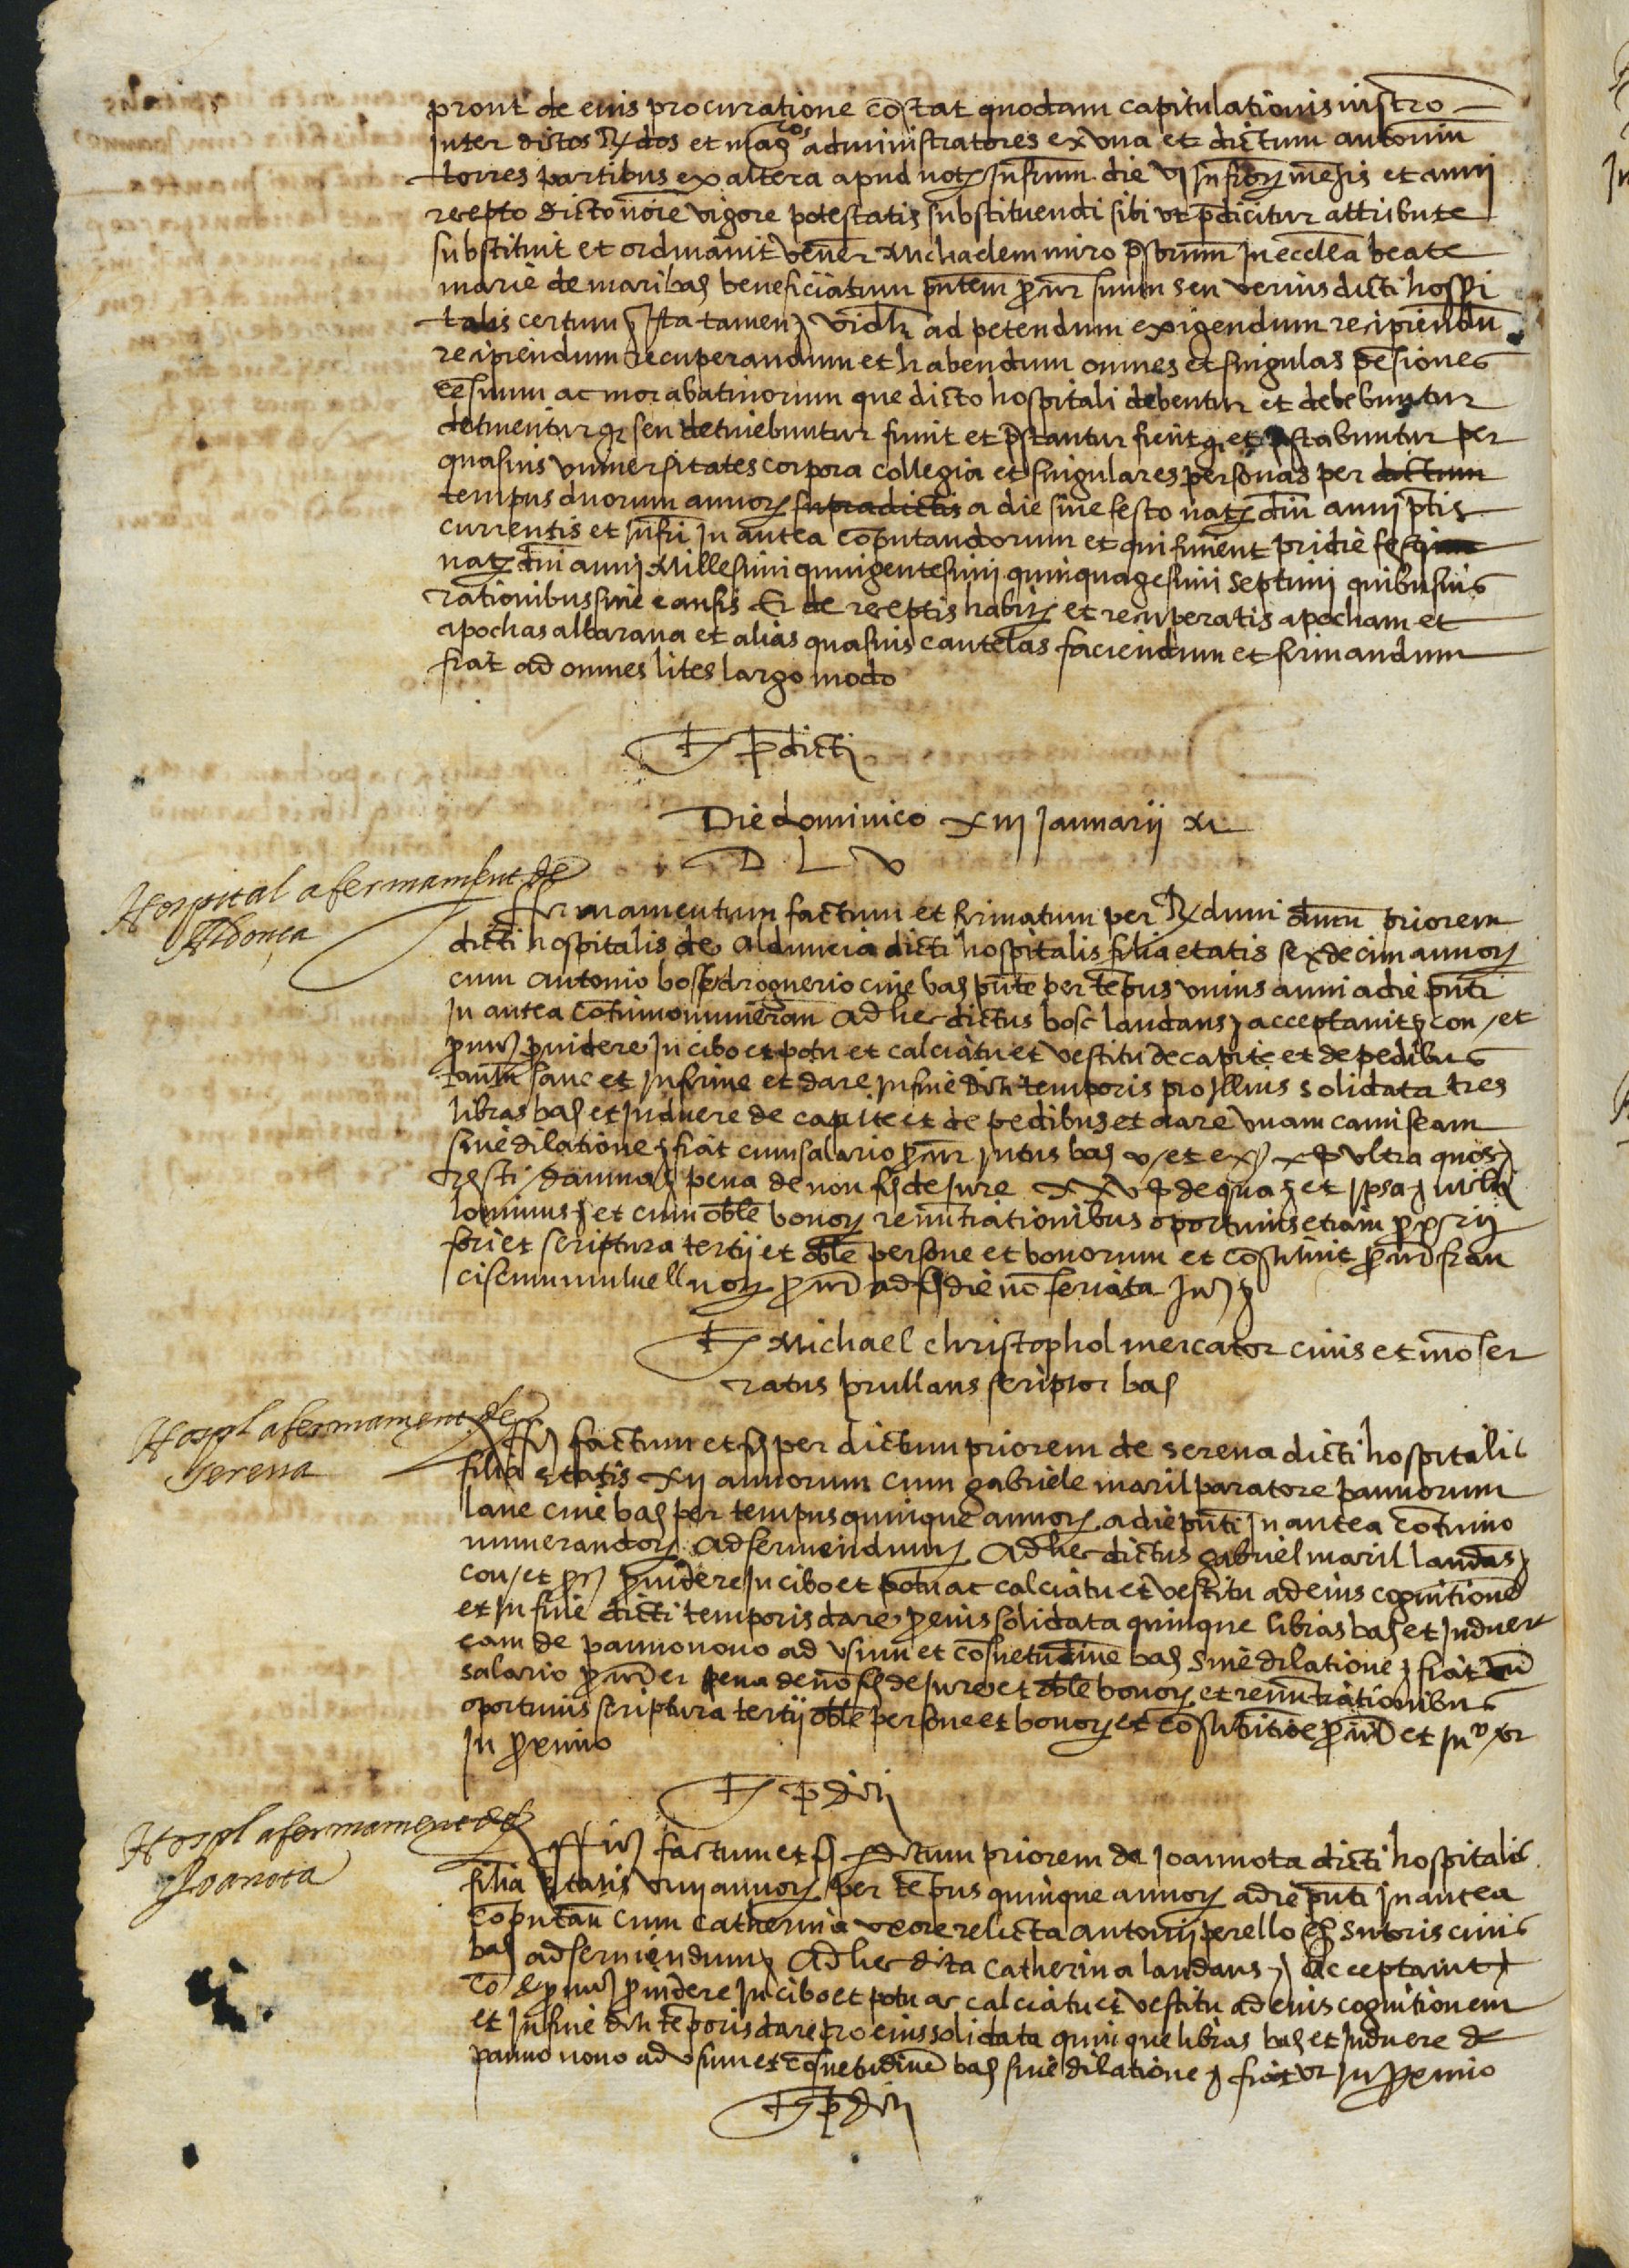 pront de eius procuratione cõstat quodam capitulationis instro
Inter dictos Rdos et magcos administratores ex vna et dictum antoniũ
torres partibus ex altera apud notm Infrum die vj Infrorum mensis et anni
recepto dicto noie vigore potestatis substituendi sibi vt pdicitur attribute
substituit et ordinauit vener Michaelem miro psbrum In ecclea beate
marie de mari bas beneficiatum pntem pcur suum seu verius dicti hospi
talis certum Ita tamen videlt ad petendum exigendum recipiendũ
recipiendum recuperandum et habendum omnes et singulas pẽsiones
cẽsuum ac morabatinorum que dicto hospitali debentur et debebuntur
detinentur q seu detinebuntur fiunt et pstantur fient q et pstabuntur per
quasuis vniuersitates corpora collegia et singulares personas per dictum
tempus duorum annor supradictis a die siue festo nat dni anni ptis
currentis et Infri In antea cõputandorum et qui finient pridie festi
nat dni anni Millesimi quingentesimi quinquagesimi septimi quibusuis
rationibus siue causis Et de receptis habitis et recuperatis apocham et
apochas albarana et alias quasuis cautelas faciendum et firmandum
fiat ad omnes lites largo modo
T pdicti
Die dominico xiij Januarii
D L v
Hospital afermament de
Aldonça
Affirmamentum factum et firmatum per Rdum dnum priorem
dicti hospitalis de aldoncia dicti hospitalis filia etatis sexdecim annor
cum antonio bosc droguerio ciue bas pnte per tẽpus vnius anni a die pnti
In antea cõtinuo numeran Ad hec dictus bosc laudans acceptauit con et
prouidere In cibo et potu et calciatu et vestitu de capite et de pedibus
sane et Infirme et dare In fine dicti temporis pro Illius solidata tres
libras bas et Induere de capite et de pedibus et dare vnam camiseam
sine dilatione fiat cum salario pcur Intus bas v et ex x s vltra quos
resti damna pena de non f de Iure xxv s de qua et ipsa
et cum oble bonor renuntiationibus oportunis etiam
fori et scriptura tertij et oble persone et bonorum et cõstituit pcur fran
ciscum not pcur ad die nõ feriata Iu
T Michael christophol mercator ciuis et mõser
ratus prullans scriptor bas
Hospl afermament de
Serena
factum et f per dictum priorem de serena dicti hospitalis
filia etatis xij annorum cum gabriele maril paratore pannorum
lane ciue bas per tempus quinque annor a die pnti In antea cõtinuo
numerandor ad seruiendum Ad hec dictus gabriel maril laudãs
con et prouidere In cibo et potu ac calciatu et vestitu ad eius cognitionẽ
et In fine dicti temporis dare p eius solidata quinque libras bas et Induere
eam de panno nouo ad vsum et cõsuetudinẽ bas sine dilatione fiat cũ
salario pcur et pena de nõ f de Iure et oble bonor et renũtiationibus
oportunis scriptura tertij oble persone et bonor et cõstitutiõe pcur et Iur vt
In proximo
T pdicti
Hospl afermament de
Joanota
factum et f p dictum priorem de Joannota dicti hospitalis
filia etatis viiij annor per tẽpus quinque annor a die pnti In antea
cõputan cum catherina vxore relicta antonij perello sutoris ciuis
bas ad seruiendum Ad hec dicta catherina laudans acceptauit
cõ et prouidere In cibo et potu ac calciatu et vestitu ad eius cognitionem
et In fine dicti tẽporis dare pro eius solidata quinque libras bas et Induere de
panno nouo ad vsum et cõsuetudinẽ bas sine dilatione fiat vt In proximo
T pdicti